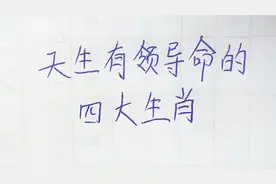 天生有领导命的
四大生肖